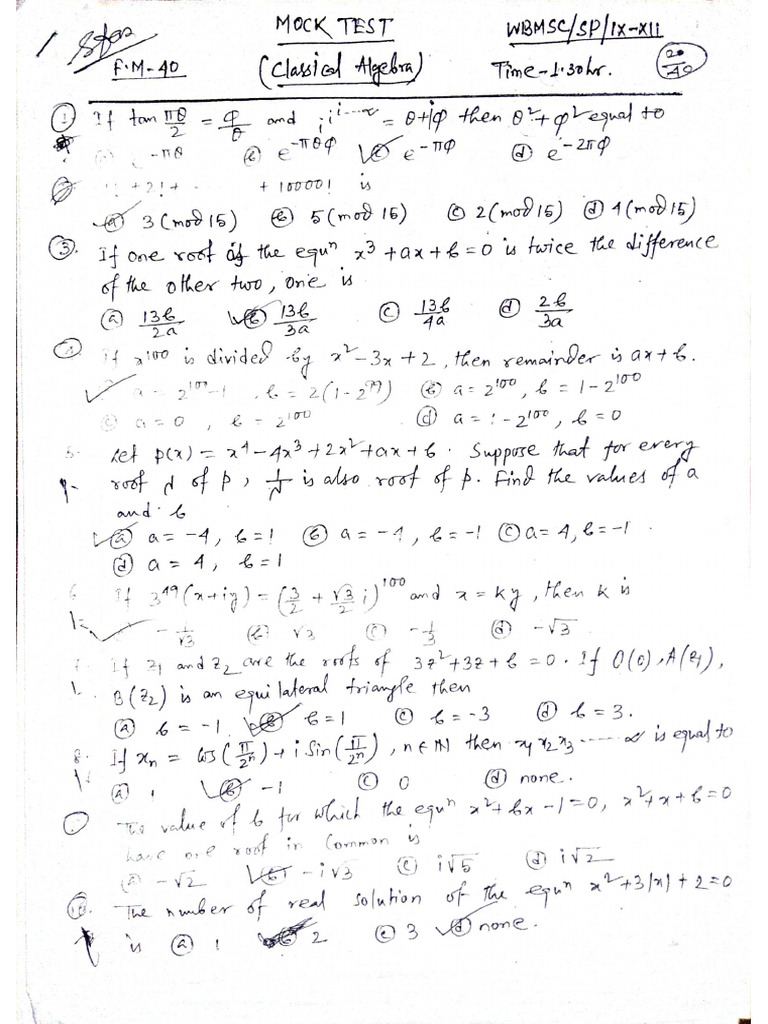 MOCK TEST WBMSC/SP/IX-XII
F.M-40 (Classical Algebra) Time-1.30hr. 20/40
① If tan πθ/2 = φ/θ and i^i^i^....∞ = θ+iφ then θ²+φ² equal to
e^-πθ ⓑ e^-πθφ ⓒ e^-πφ ⓓ e^-2πφ
+2!+ ....... +10000! is
ⓐ 3(mod 15) ⓑ 5(mod 15) ⓒ 2(mod 15) ⓓ 4(mod 15)
③. If one root of the equⁿ x³+ax+b=0 is twice the difference
of the other two, one is
ⓐ 13b/2a ⓑ 13b/3a ⓒ 13b/4a ⓓ 2b/3a
If x^100 is divided by x²-3x+2, then remainder is ax+b.
b = 2(1-2^99) ⓑ a=2^100, b=1-2^100
ⓒ a=0, b=2^100 ⓓ b=0
5. Let p(x) = x⁴-4x³+2x²+ax+b. Suppose that for every
root of p, is also root of p. Find the values of a
and b
ⓐ a=-4, b=1 ⓑ a=-4, b=-1 ⓒ a=4, b=-1.
ⓓ a=4, b=1
6. If 3^49(x+iy) = (3/2 + √3/2 i)^100 and x=ky, then k is
-1/√3 ⓑ √3 ⓒ -1/3 ⓓ -√3
7. If z₁ and z₂ are the roots of 3z²+3z+b=0. If O(0), A(z₁),
B(z₂) is an equilateral triangle then
ⓐ b=-1 ⓑ b=1 ⓒ b=-3 ⓓ b=3.
8. If xₙ = Cos(π/2ⁿ)+i Sin(π/2ⁿ), n∈ℕ then x₁x₂x₃ ......∞ is equal to
ⓐ 1 ⓑ -1 ⓒ 0 ⓓ none.
The value of b for which the equⁿ x²+bx-1=0, x²+x+b=0
have one root in common is
ⓐ -√2 ⓑ -i√3 ⓒ i√5 ⓓ i√2
10. The number of real solution of the equⁿ x²+3|x|+2=0
is ⓐ 1 ⓑ 2 ⓒ 3 ⓓ none.